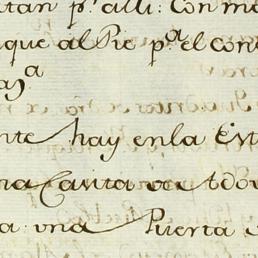 tan p.ª alli: Con m
que al Pie p.ª el con
nte hay en la Est
na Canta
a: una Puerta